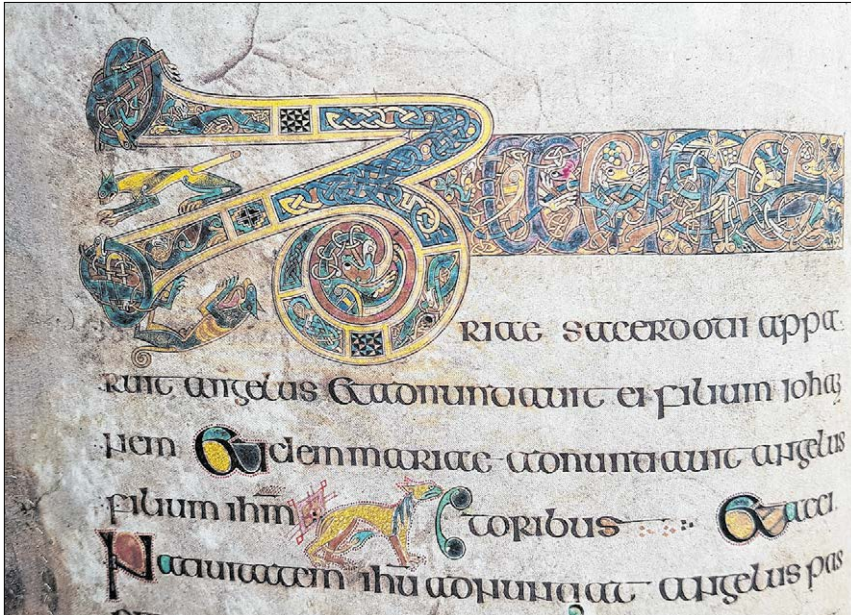 Zacha
riae sacerdoti appa
ruit angelus &adnuntiauit ei filium iohan
nem &idem mariae adnuntiauit angelus
filium ihm̅ toribus &acci
Natiuitatem ihu adnuntiat angelus pas